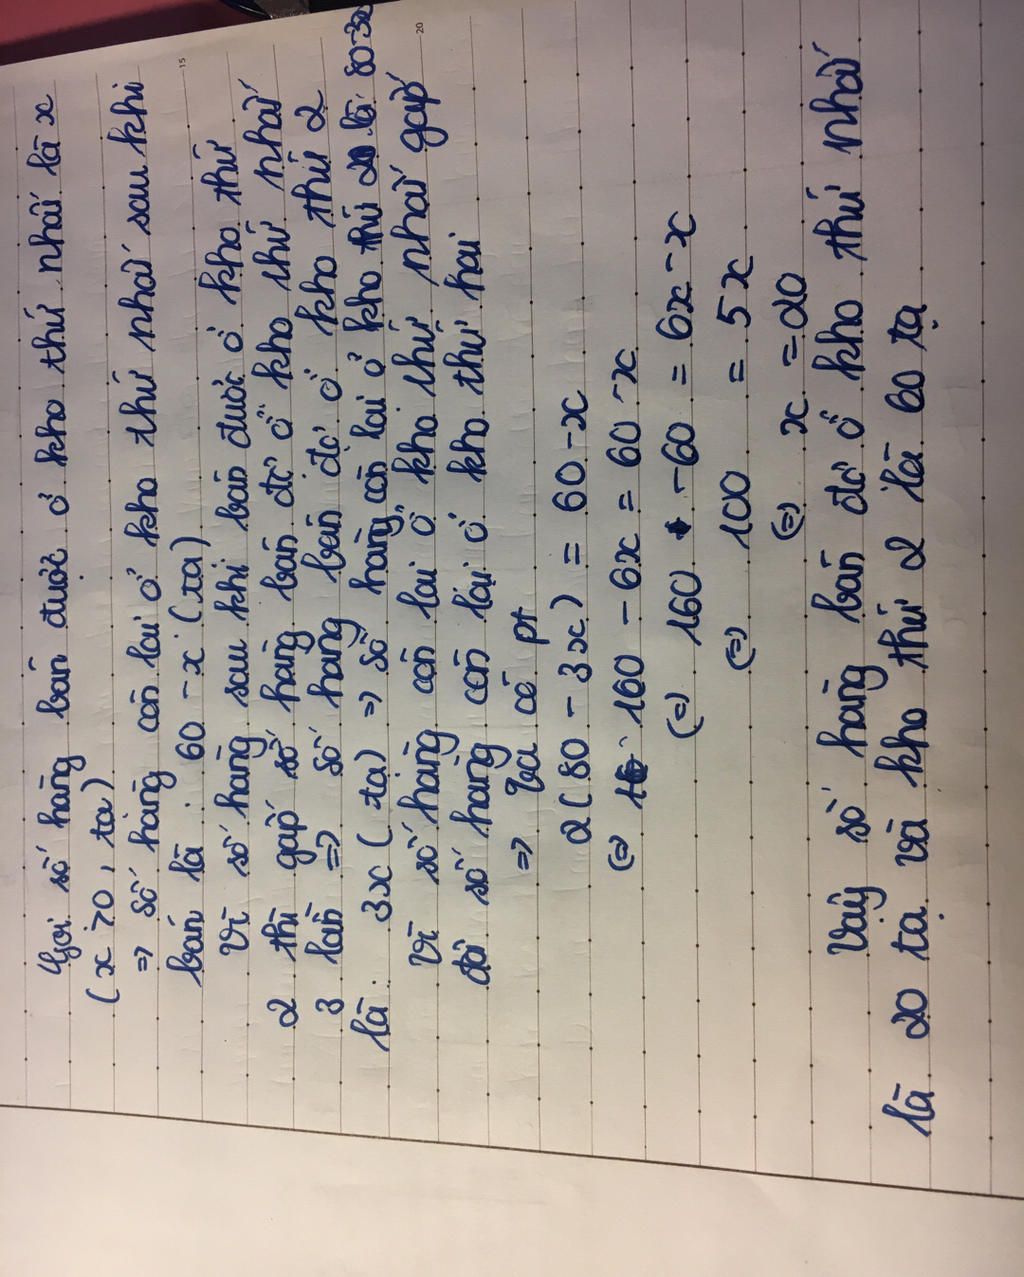 Gọi số hàng bán được ở kho thứ nhất là x
(x > 0, tạ)
=> số hàng còn lại ở kho thứ nhất sau khi
bán là : 60 - x (tạ)
Vì số hàng sau khi bán được ở kho thứ
2 thì gấp số hàng bán đc ở kho thứ nhất
3 lần => số hàng bán đc ở kho thứ 2
là : 3x (tạ) => số hàng còn lại ở kho thứ 2 là 80-3x
Vì số hàng còn lại ở kho thứ nhất gấp
đôi số hàng còn lại ở kho thứ hai
=> ta có pt
2(80 - 3x) = 60 - x
(=) 160 - 6x = 60 - x
(=) 160 - 60 = 6x - x
(=) 100 = 5x
(=) x = 20
Vậy số hàng bán đc ở kho thứ nhất
là 20 tạ và kho thứ 2 là 60 tạ
15
20